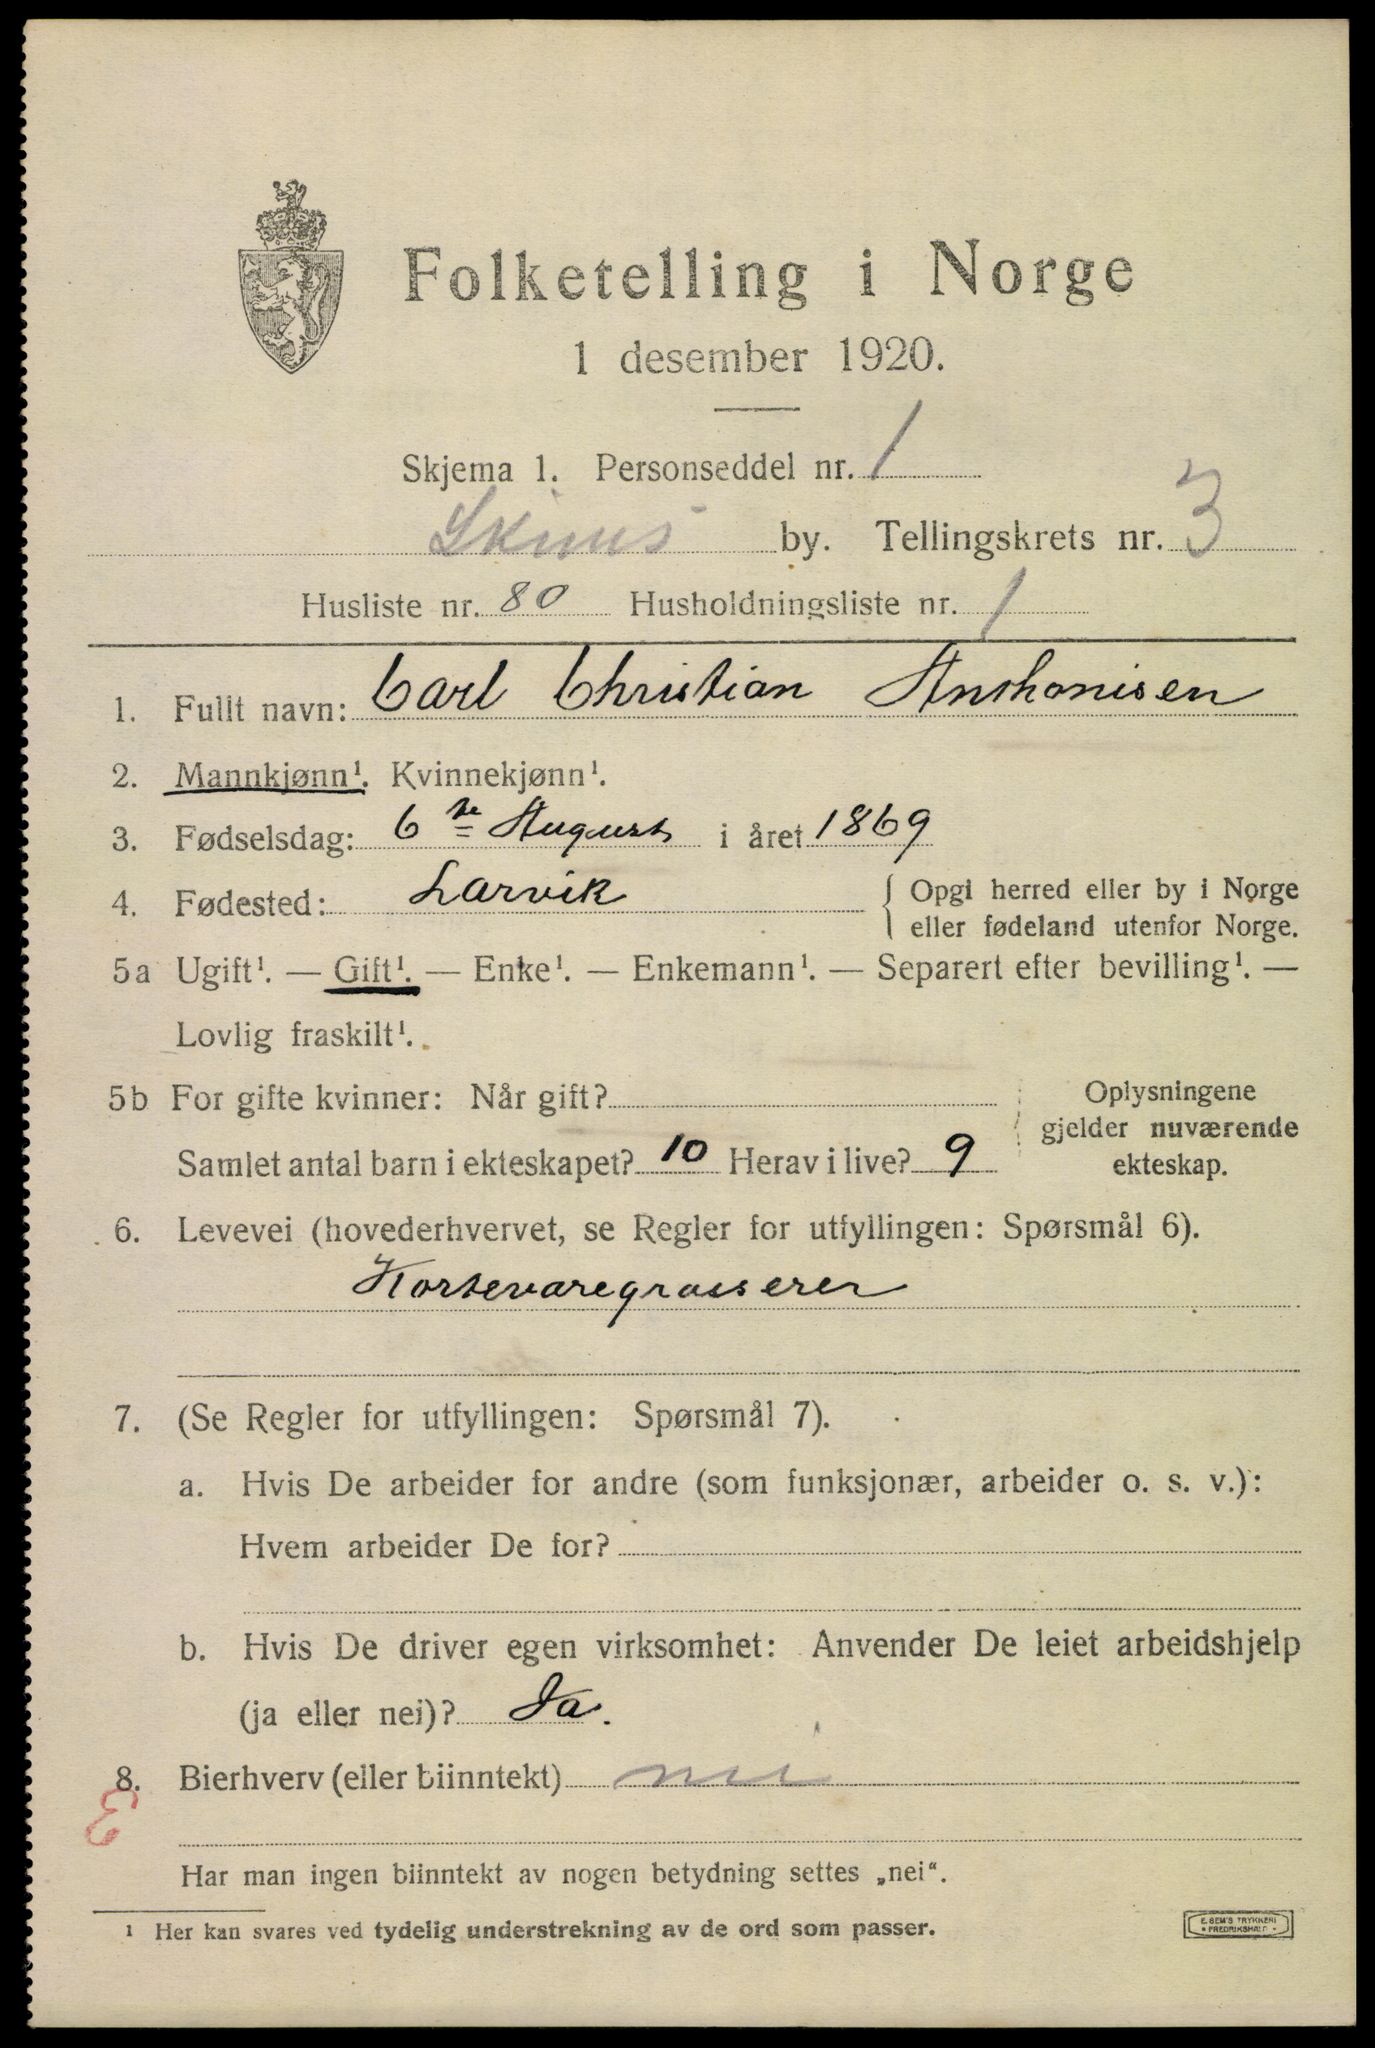 Folketelling i Norge
1 desember 1920.
Skjema 1. Personseddel nr. 1
Skiens by. Tellingskrets nr. 3
Husliste nr. 80 Husholdningsliste nr. 1
1. Fullt navn: Carl Christian Anthonisen
2. Mannkjønn¹. Kvinnekjønn¹.
3. Fødselsdag: 6te August i året 1869
4. Fødested: Larvik { Opgi herred eller by i Norge
eller fødeland utenfor Norge.
5a Ugift¹. — Gift¹. — Enke¹. — Enkemann¹. — Separert efter bevilling¹. —
Lovlig fraskilt¹.
5b For gifte kvinner: Når gift?
Samlet antal barn i ekteskapet? 10 Herav i live? 9
Oplysningene
gjelder nuværende
ekteskap.
6. Levevei (hovederhvervet, se Regler for utfyllingen: Spørsmål 6).
Kortevaregrosserer
7. (Se Regler for utfyllingen: Spørsmål 7).
a. Hvis De arbeider for andre (som funksjonær, arbeider o. s. v.):
Hvem arbeider De for?
b. Hvis De driver egen virksomhet: Anvender De leiet arbeidshjelp
(ja eller nei)? Ja.
8. Bierhverv (eller biinntekt) nei
Har man ingen biinntekt av nogen betydning settes „nei“.
¹ Her kan svares ved tydelig understrekning av de ord som passer.
E. SEM'S TRYKKERI
FREDRIKSHALD